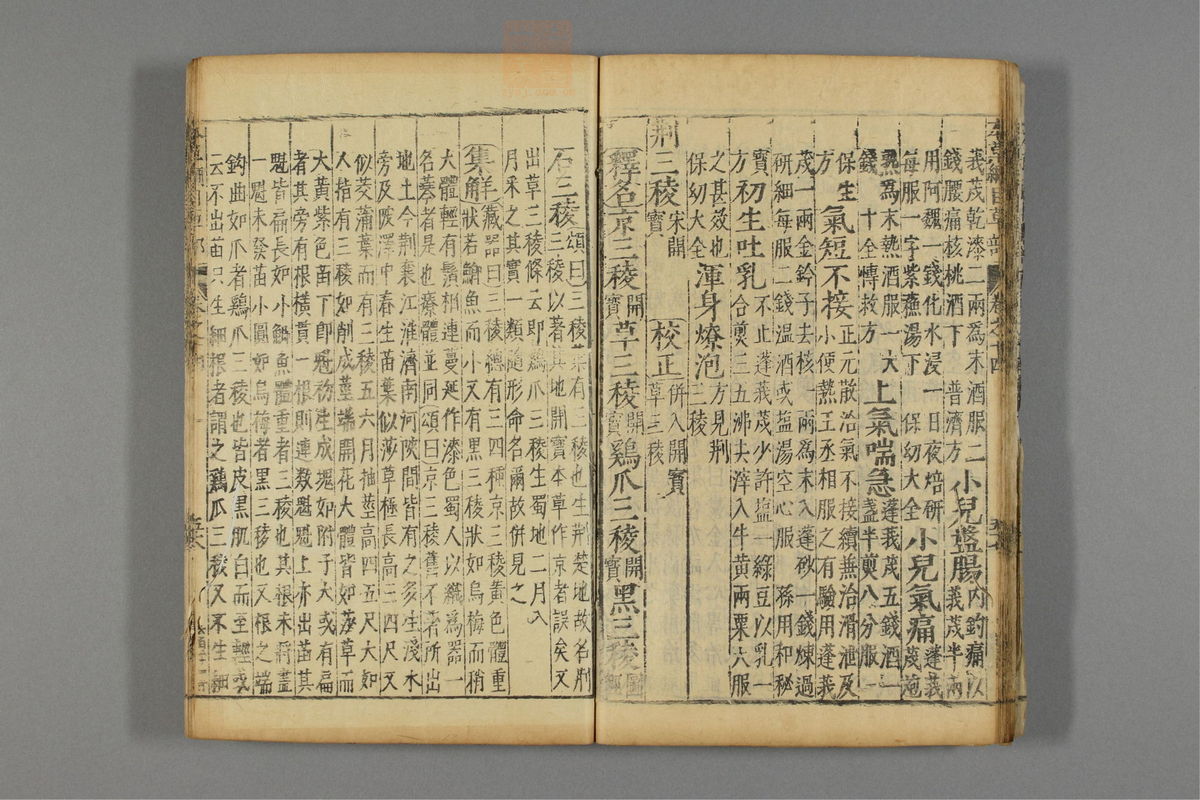 莪茂乾漆二兩爲末酒服二
錢腰痛核桃酒下 普濟方
小兒盤腸内釣痛以
莪茂半兩
用阿魏一錢化水浸一日夜焙研
每服一字紫蘇湯下 保幼大全
小兒氣痛
蓬莪茂炮
熟爲末熱酒服一大
錢 十全博救方
上氣喘急
蓬莪茂五錢酒一
盞半煎八分服
保生
方
氣短不接
正元散治氣不接續兼治滑泄及
小便數王丞相服之有驗用蓬莪
茂一兩金鈴子去核一兩爲末入蓬砂一錢煉過
研細每服二錢温酒或塩湯空心服 孫用和秘
寶
方
初生吐乳
不止蓬莪茂少許塩一綠豆以乳一
合煎三五沸去滓入牛黄兩粟大服
之甚效也
保幼大全
渾身燎泡
方見荆
三稜
荆三稜
宋開
寶
校正
併入開寶
草三稜
釋名京三稜
開
寶
草三稜
開
寶
鷄爪三稜
開
寶
黑三稜
圖
經
石三稜
頌曰三稜葉有三稜也生荆楚地故名荆
三稜以著其地開寶本草作京者誤矣又
出草三稜條云即鷄爪三稜生蜀地二月八
月采之其實一類隨形命名爾故併見之
集解
藏器曰三稜總有三四種京三稜黄色體重
狀若鯽魚而小又有黑三稜狀如烏梅而稍
大體輕有鬚相連蔓延作漆色蜀人以織爲器一
名𦵒者是也療體並同頌曰京三稜舊不著所出
地土今荆襄江淮濟南河陝間皆有之多生淺水
旁及陂澤中春生苗葉似莎草極長高三四尺又
似茭蒲葉而有三稜五六月抽莖高四五尺大如
人指有三稜如削成莖端開花大體皆如莎草而
大黄紫色苗下即魁初生成塊如附子大或有扁
者其旁有根橫貫一根則連數魁魁上亦出苗其
魁皆扁長如小鯽魚體重者三稜也其根末將盡
一魁未發苗小圓如烏梅者黑三稜也又根之端
鈎曲如爪者鷄爪三稜也皆皮黑肌白而至輕或
云不出苗只生細根者謂之鷄爪三稜又不生細